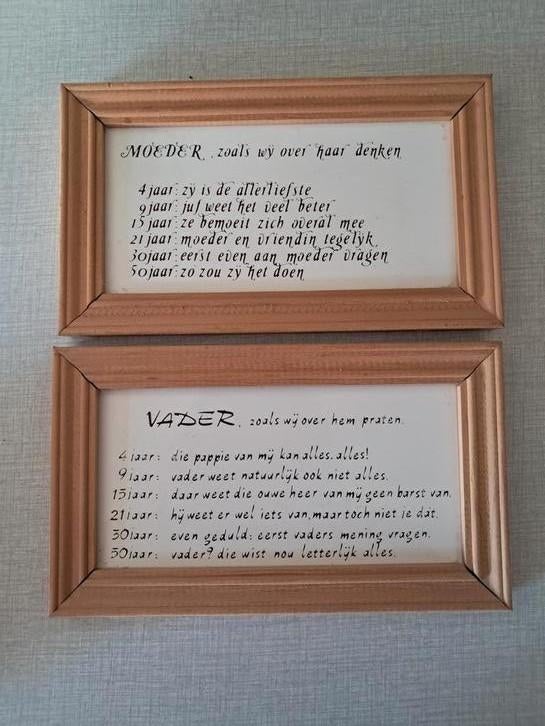 MOEDER, zoals wij over haar denken
4 jaar: zij is de allerliefste
9 jaar: juf weet het veel beter
15 jaar: ze bemoeit zich overal mee
21 jaar: moeder en vriendin tegelijk
30 jaar: eerst even aan moeder vragen
50 jaar: zo zou zij het doen
VADER, zoals wij over hem praten.
4 jaar: die pappie van mij kan alles. alles!
9 jaar: vader weet natuurlijk ook niet alles.
15 jaar: daar weet die ouwe heer van mij geen barst van.
21 jaar: hij weet er wel iets van, maar toch niet je dát.
30 jaar: even geduld: eerst vaders mening vragen.
50 jaar: vader? die wist nou letterlijk alles.